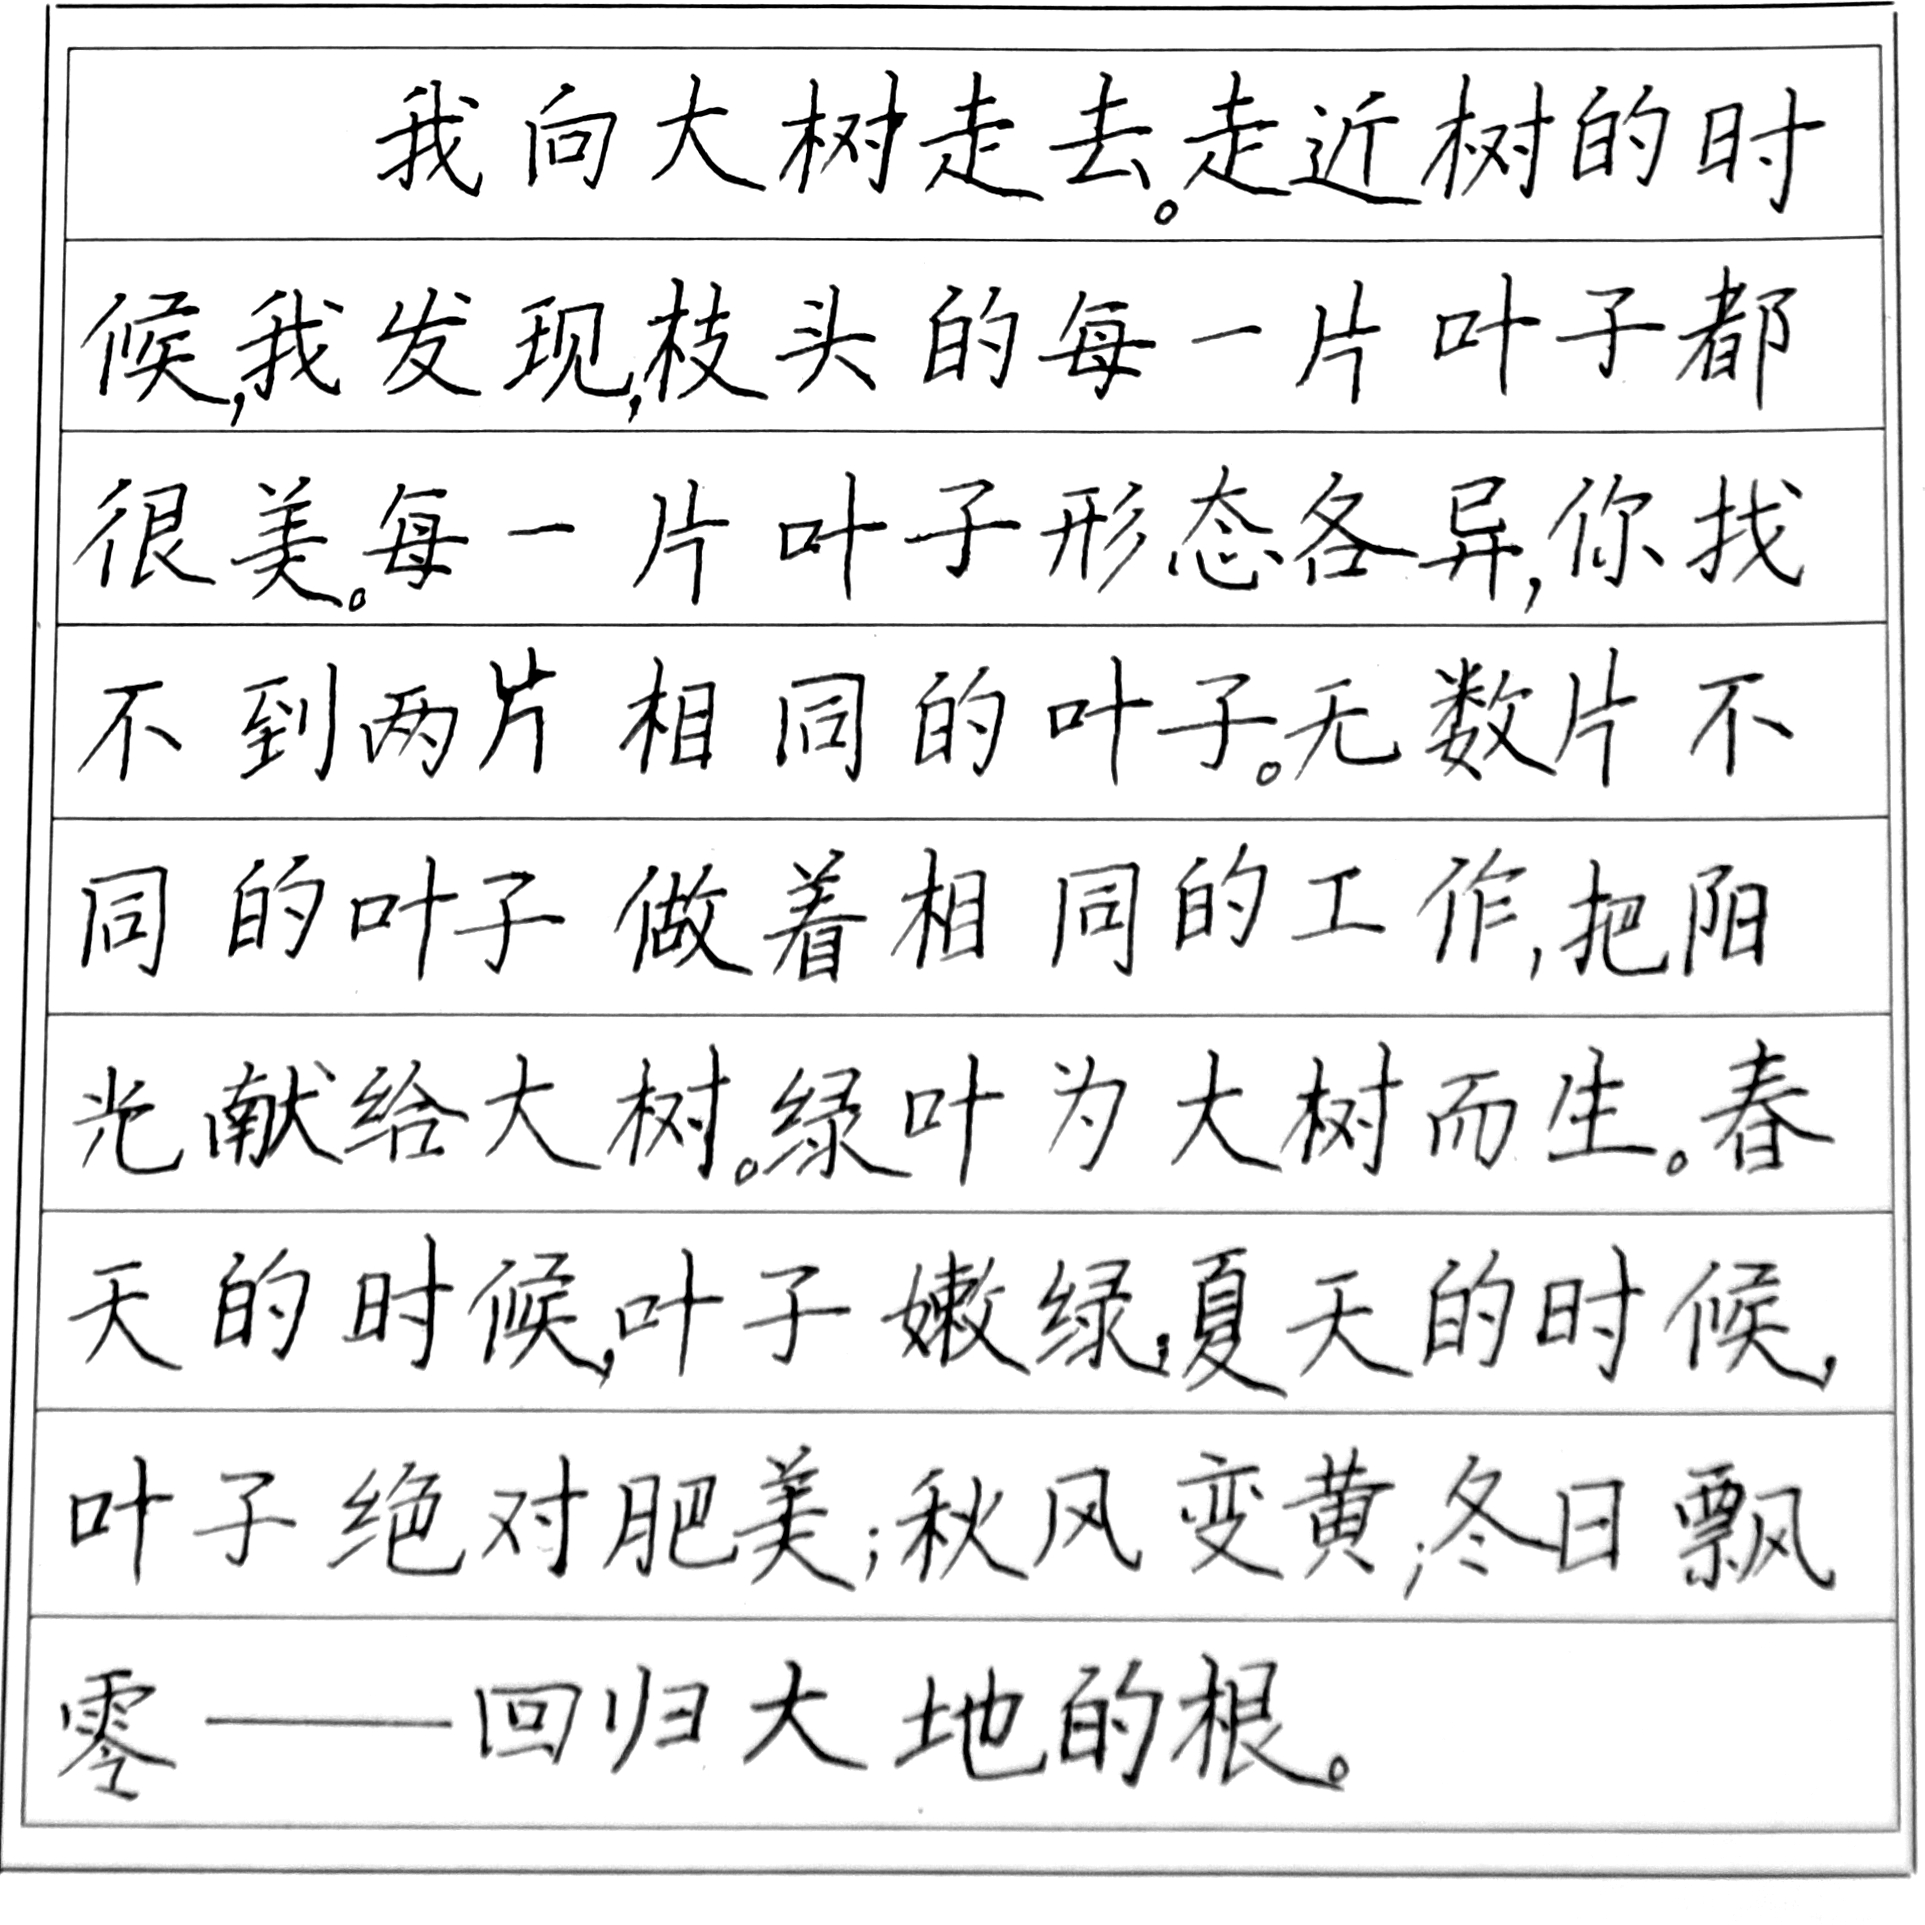 我向大树走去。走近树的时
候,我发现,枝头的每一片叶子都
很美。每一片叶子形态各异,你找
不到两片相同的叶子。无数片不
同的叶子做着相同的工作,把阳
光献给大树。绿叶为大树而生。春
天的时候,叶子嫩绿;夏天的时候,
叶子绝对肥美;秋风变黄;冬日飘
零——回归大地的根。